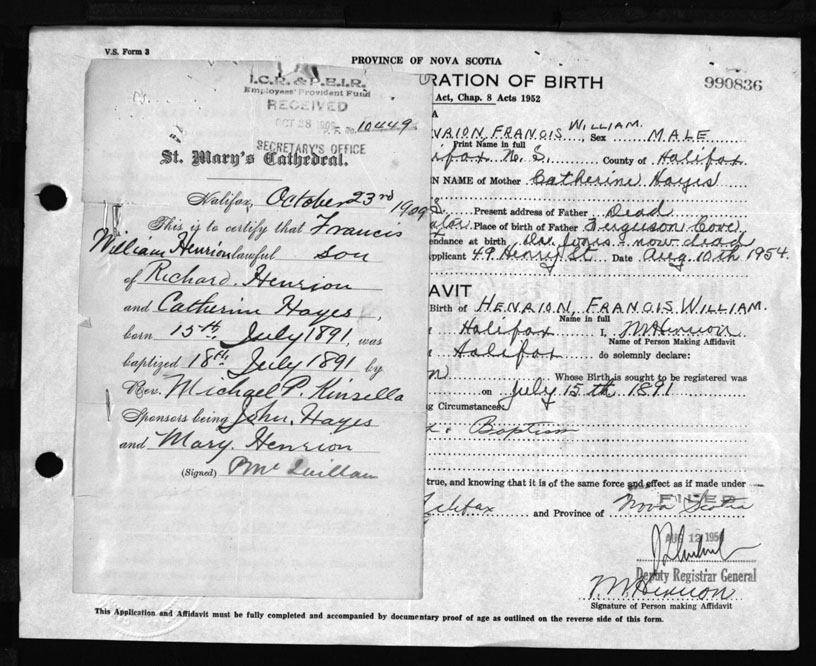 V.S. Form 3
PROVINCE OF NOVA SCOTIA
RATION OF BIRTH
990836
Act, Chap. 8 Acts 1952
I.C.R. & P.E.I.R.
Employees' Provident Fund
RECEIVED
OCT 28 1909
P.F. No. 10449
SECRETARY'S OFFICE
St. Mary's Cathedral.
Halifax, October 23rd 1909
This is to certify that Francis
William Henrion lawful son
of Richard Henrion
and Catherin Hayes,
born 15th July 1891, was
baptized 18th July 1891 by
Rev. Michael P. Kinsella
Sponsors being John Hayes
and Mary Henrion
(Signed) P Mc Quillan
A
NRION, FRANCIS WILLIAM. Sex MALE
Print Name in full
lifax N.S. County of Halifax
EN NAME of Mother Catherine Hayes
S. Present address of Father Dead
ator Place of birth of Father Ferguson Cove,
endance at birth Dr. Jones - now dead
pplicant 49 Henry St. Date Aug 10th 1954.
AVIT
Birth of HENRION, FRANCIS WILLIAM.
Name in full
Halifax I, M Henrion
Name of Person Making Affidavit
Halifax do solemnly declare:
n Whose Birth is sought to be registered was
on July 15th 1891
ng Circumstances:
Baptism
true, and knowing that it is of the same force and effect as if made under
Halifax and Province of Nova Scotia
FILED
AUG 12 1954
Deputy Registrar General
M Henrion
Signature of Person making Affidavit
This Application and Affidavit must be fully completed and accompanied by documentary proof of age as outlined on the reverse side of this form.